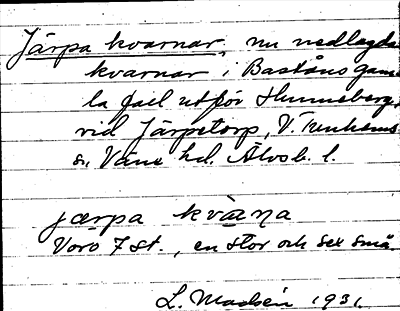 Järpa kvarnar, nu nedlagda
kvarnar i Baståns gam-
la fall utför Hunneberg,
vid Järpetorp, V. Tunhems
sn, Väne hd. Älvsb. l.
jærpa kvàɳa
Voro 7 st., en stor och sex små.
L. 1931.